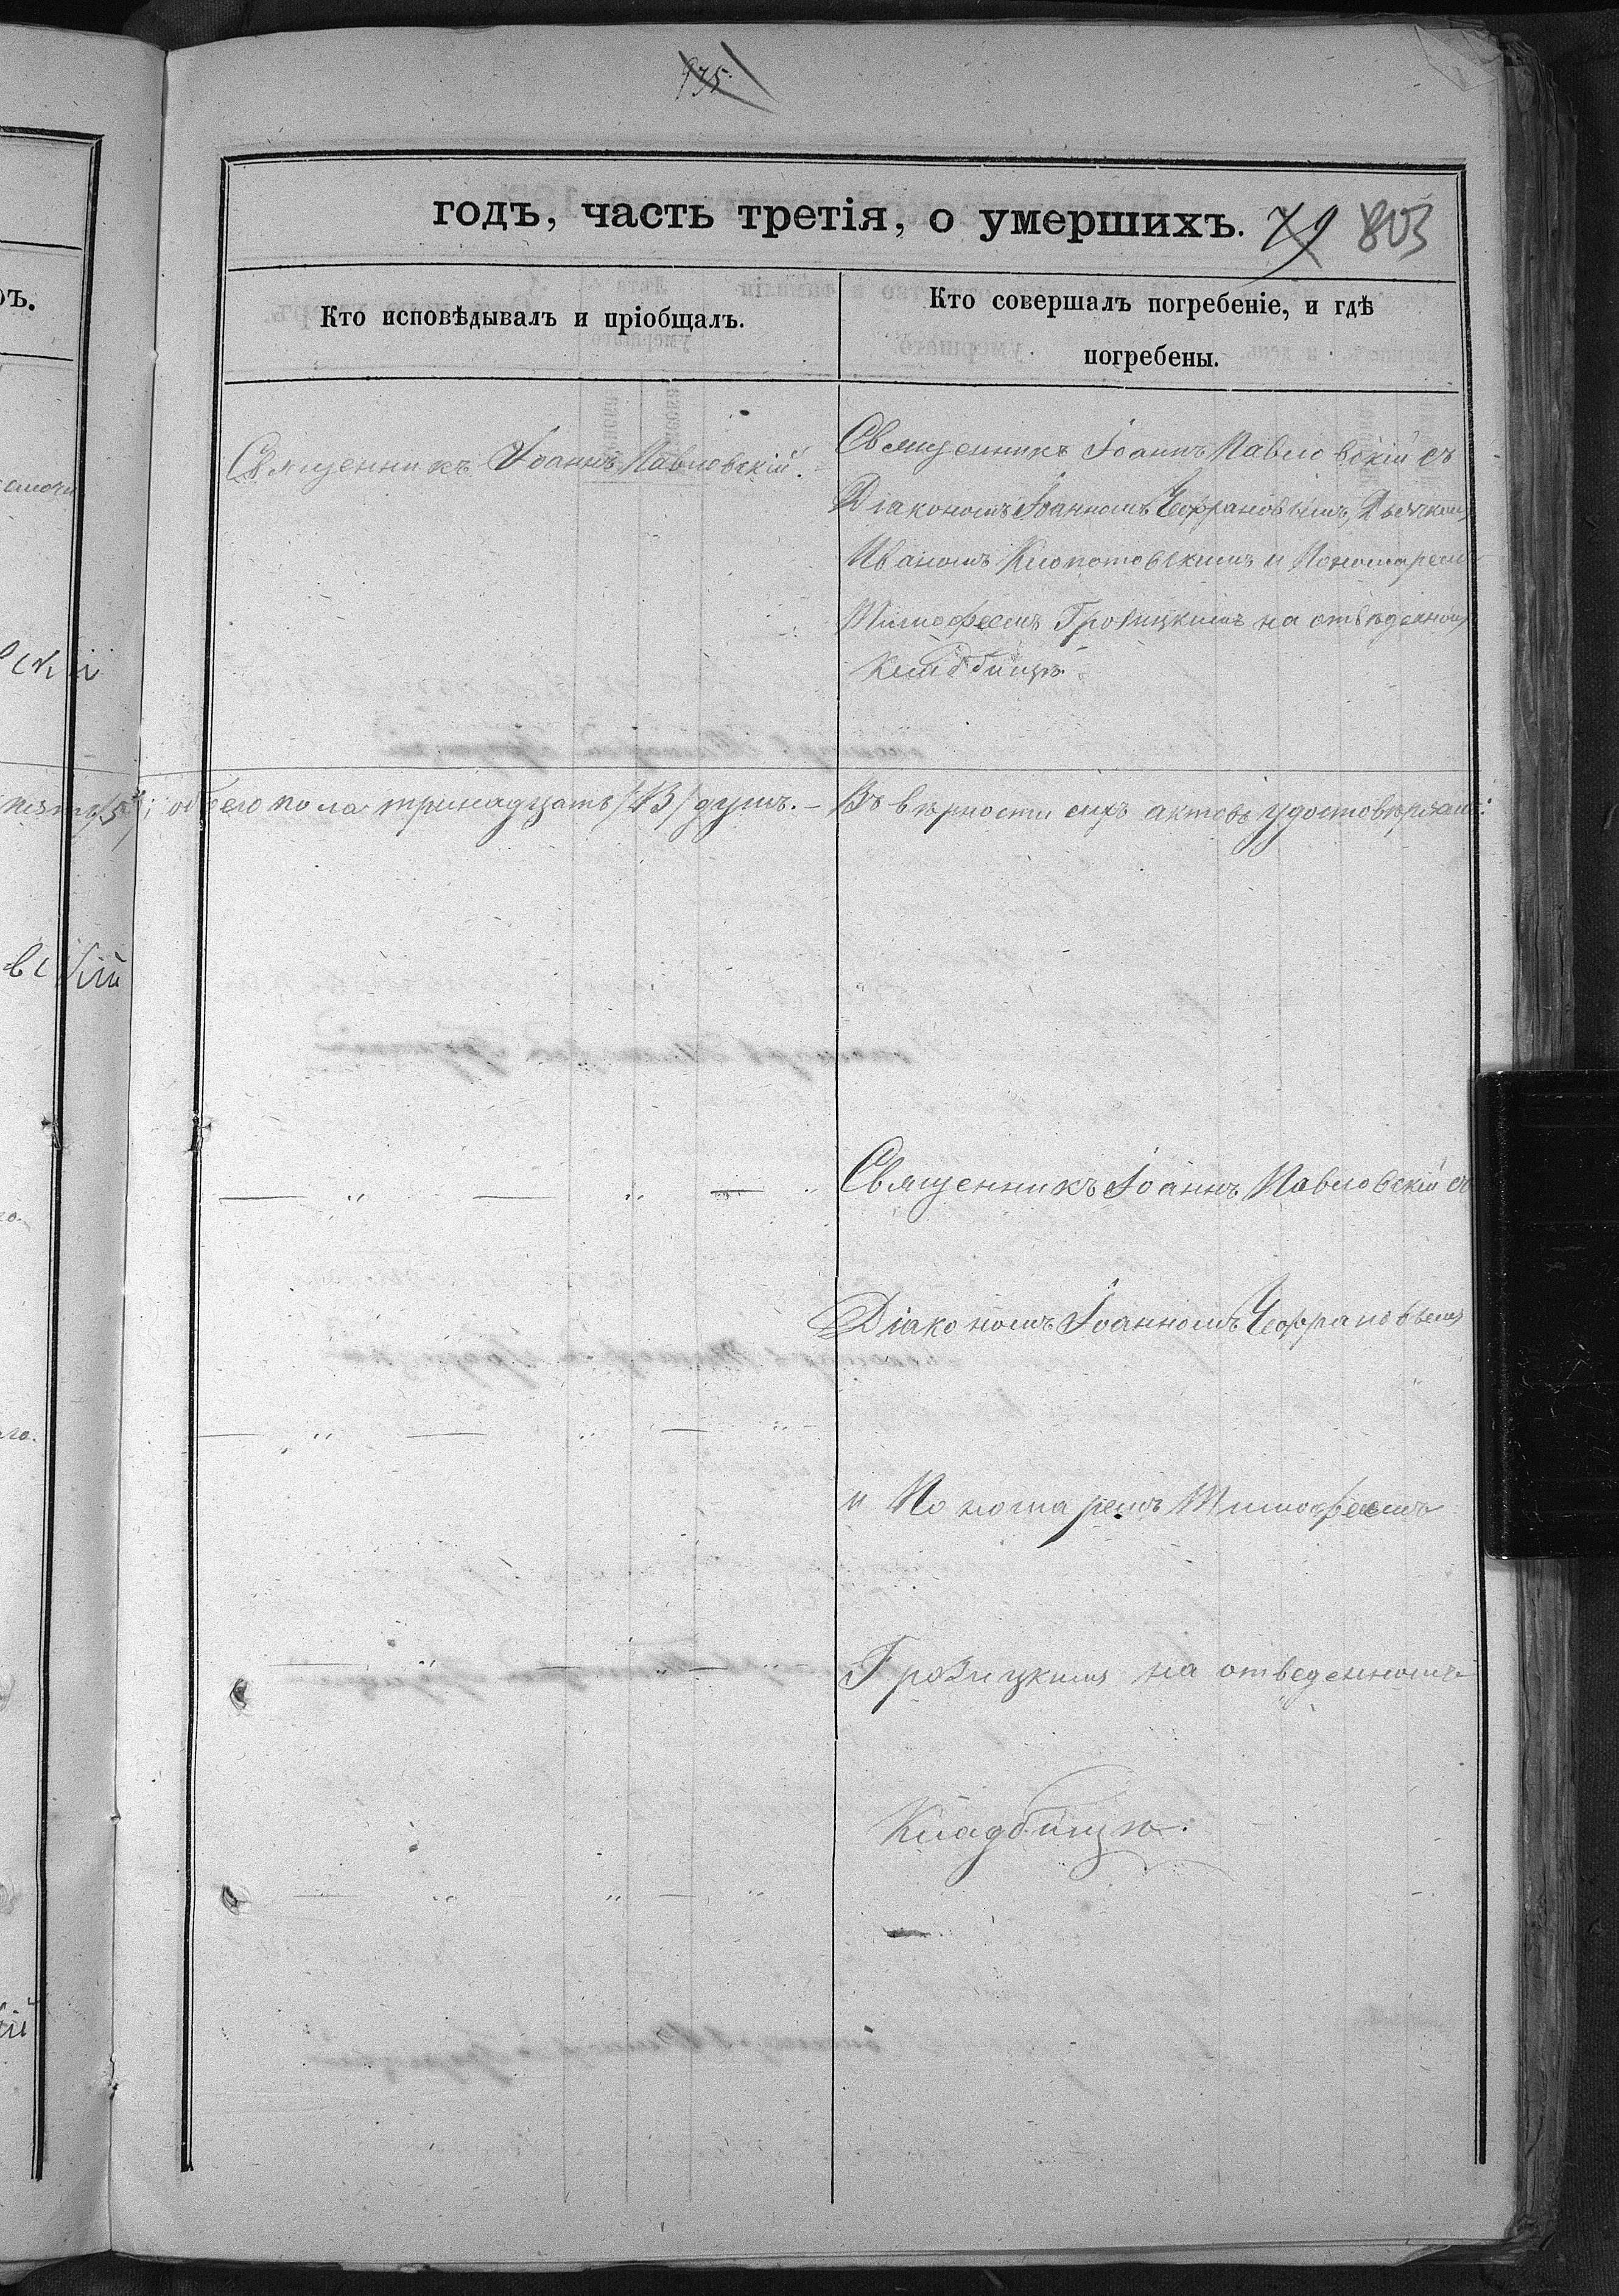 975
годъ, часть третія, о умершихъ. 79 803
Кто исповѣдывалъ и пріобщалъ.
Кто совершалъ погребеніе, и гдѣ
погребены.
Священникъ Іоаннъ Павловскій.
Священникъ Іоаннъ Павловскій съ
Діакономъ Іоанномъ Чефрановымъ, Дьячкомъ
Иваномъ Клопотовскимъ и Пономаремъ
Тимофеемъ Грозицкимъ на отведенномъ
кладбищѣ.
обоего пола тринадцать /13/ душъ. – Въ вѣрности сихъ актовъ удостовѣряемъ:
Священникъ Іоаннъ Павловскій съ
Діакономъ Іоанномъ Чефрановымъ
и Пономаремъ Тимофеемъ
Грозицкимъ на отведенномъ
Кладбищѣ.